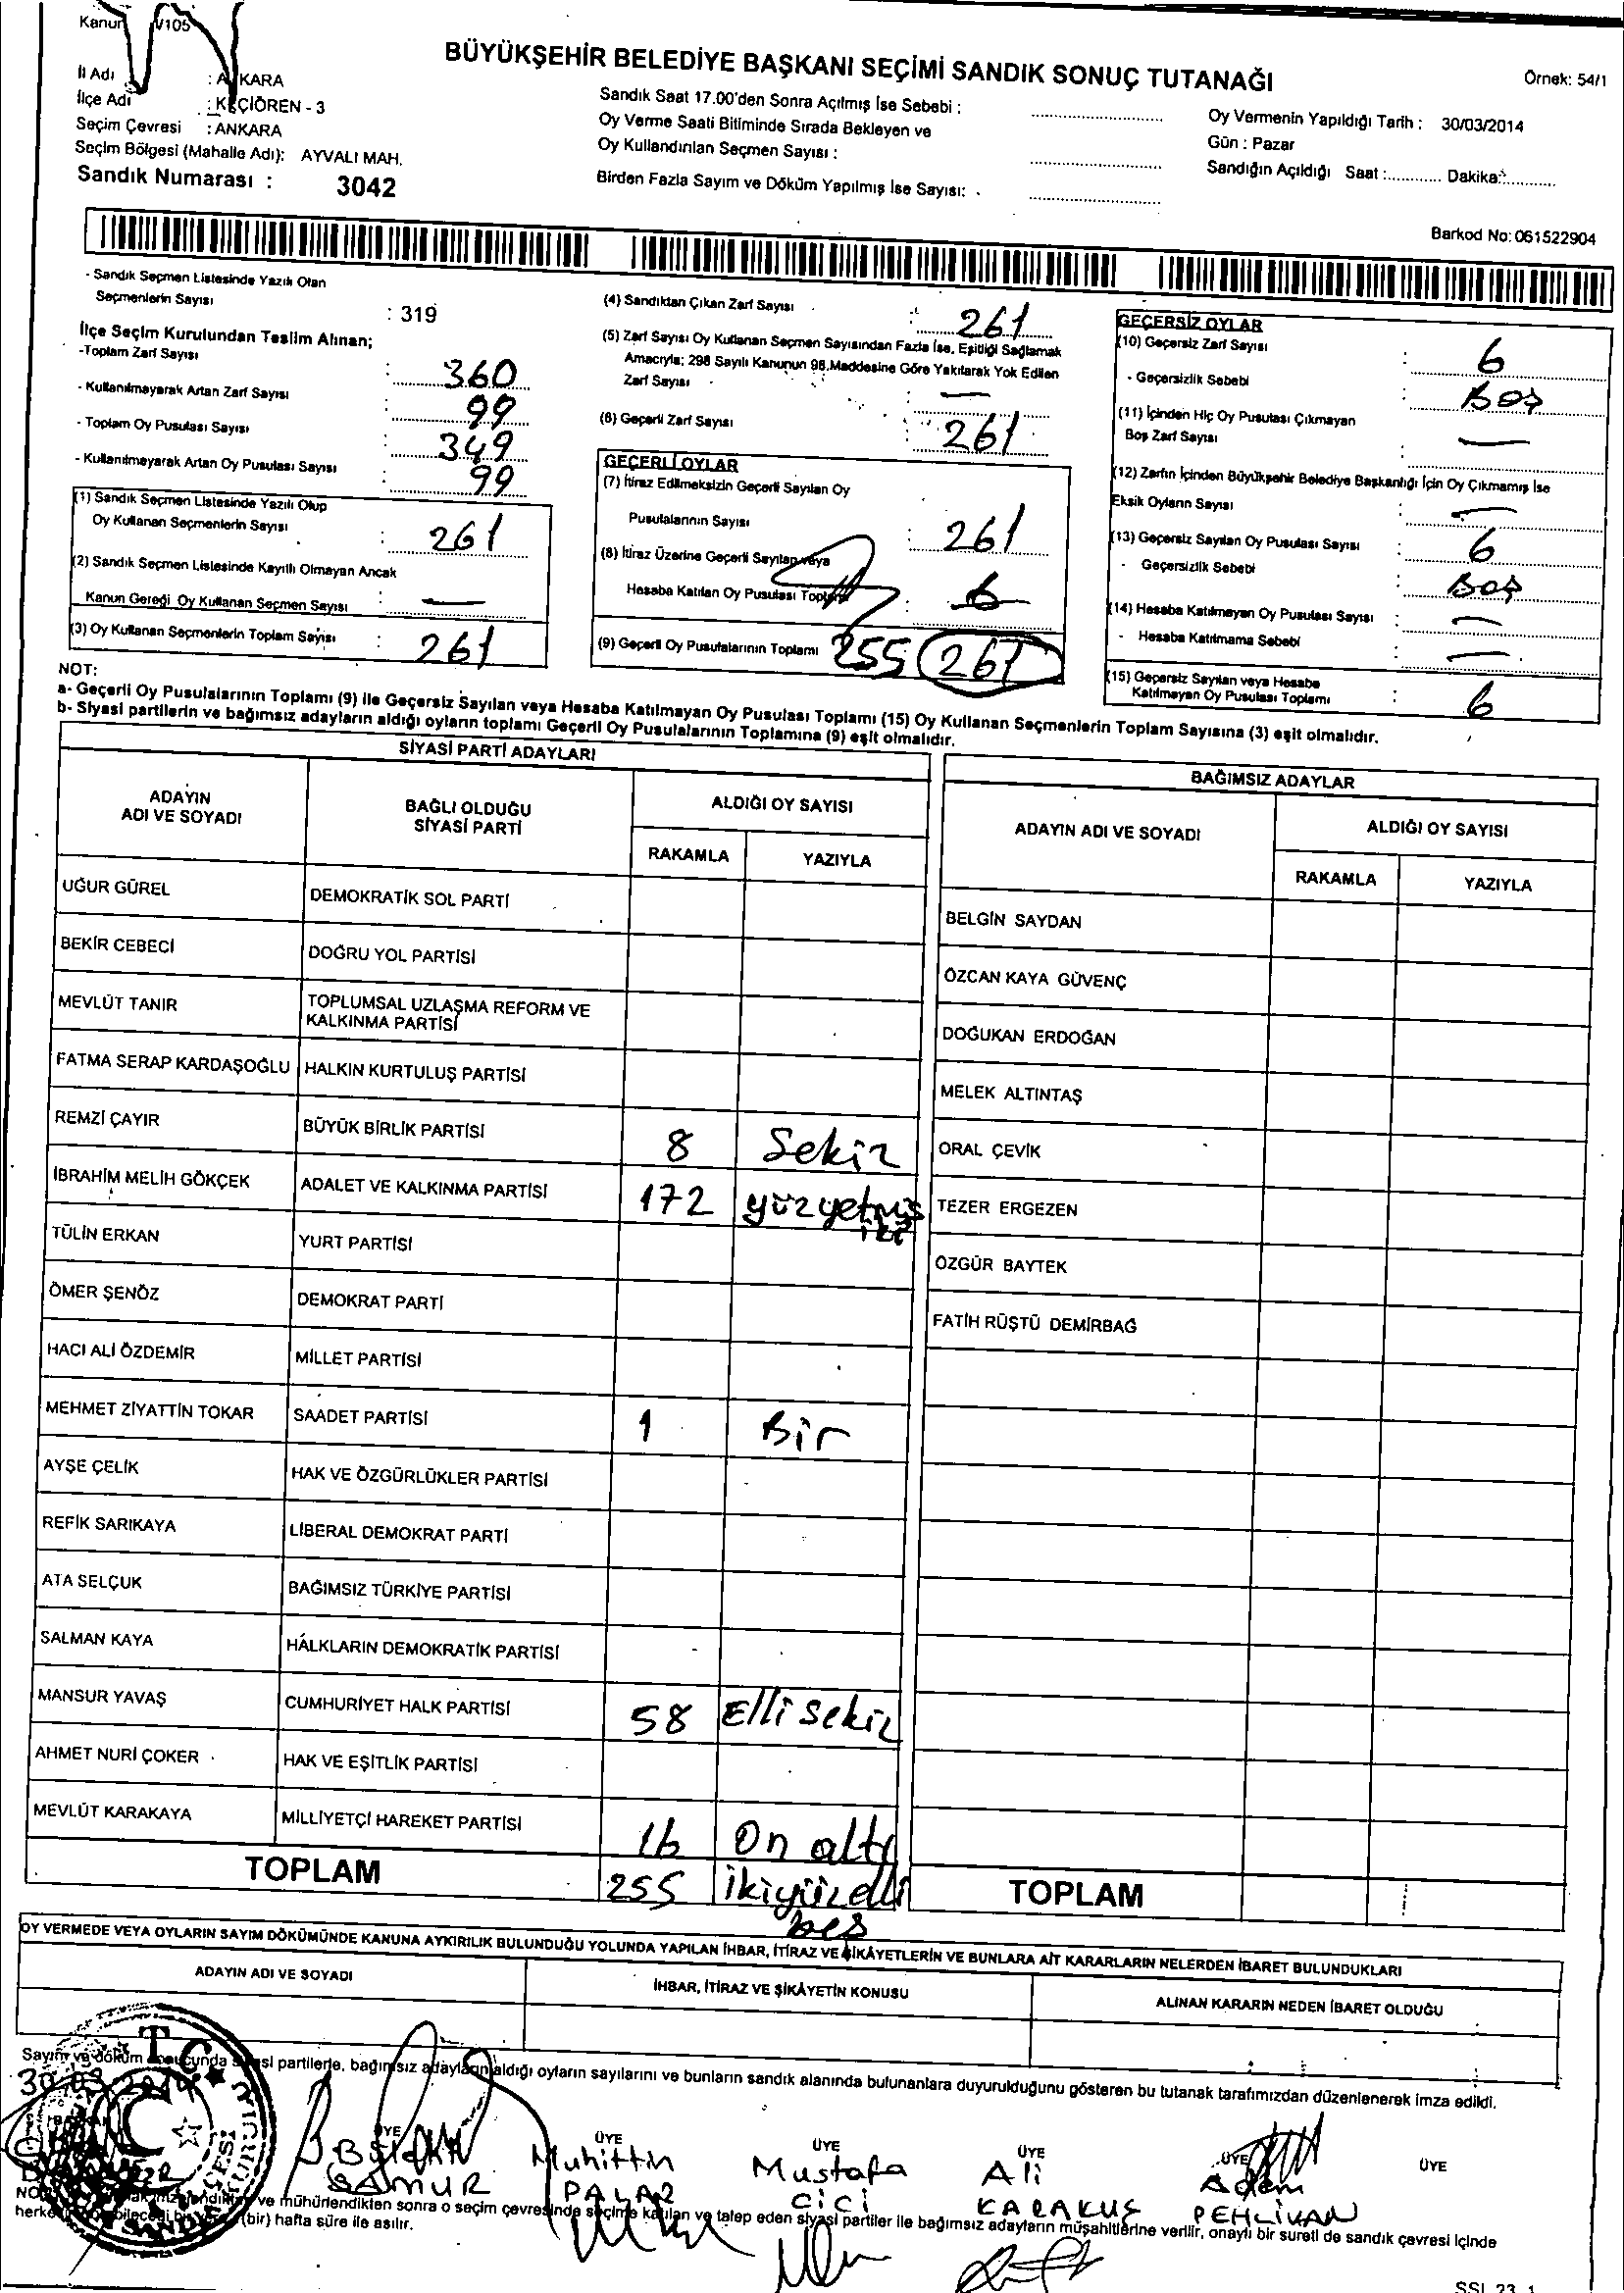 Kanun V105
BÜYÜKŞEHİR BELEDİYE BAŞKANI SEÇİMİ SANDIK SONUÇ TUTANAĞI
Örnek: 54/1
İl Adı : ANKARA
İlçe Adı : KEÇİÖREN - 3
Seçim Çevresi : ANKARA
Seçim Bölgesi (Mahalle Adı): AYVALI MAH.
Sandık Numarası : 3042
Sandık Saat 17.00'den Sonra Açılmış İse Sebebi :
Oy Verme Saati Bitiminde Sırada Bekleyen ve
Oy Kullandırılan Seçmen Sayısı :
Birden Fazla Sayım ve Döküm Yapılmış İse Sayısı:
Oy Vermenin Yapıldığı Tarih : 30/03/2014
Gün : Pazar
Sandığın Açıldığı Saat :............ Dakika:............
Barkod No: 061522904
- Sandık Seçmen Listesinde Yazılı Olan
Seçmenlerin Sayısı : 319
İlçe Seçim Kurulundan Teslim Alınan;
-Toplam Zarf Sayısı : 360
- Kullanılmayarak Artan Zarf Sayısı : 99
- Toplam Oy Pusulası Sayısı : 349
- Kullanılmayarak Artan Oy Pusulası Sayısı : 99
(1) Sandık Seçmen Listesinde Yazılı Olup
Oy Kullanan Seçmenlerin Sayısı : 261
(2) Sandık Seçmen Listesinde Kayıtlı Olmayan Ancak
Kanun Gereği Oy Kullanan Seçmen Sayısı : —
(3) Oy Kullanan Seçmenlerin Toplam Sayısı : 261
(4) Sandıktan Çıkan Zarf Sayısı : 261
(5) Zarf Sayısı Oy Kullanan Seçmen Sayısından Fazla İse, Eşitliği Sağlamak
Amacıyla; 298 Sayılı Kanunun 98.Maddesine Göre Yakılarak Yok Edilen
Zarf Sayısı : —
(6) Geçerli Zarf Sayısı : 261
GEÇERLİ OYLAR
(7) İtiraz Edilmeksizin Geçerli Sayılan Oy
Pusulalarının Sayısı : 261
(8) İtiraz Üzerine Geçerli Sayılan veya
Hesaba Katılan Oy Pusulası Toplamı : 6
(9) Geçerli Oy Pusulalarının Toplamı 255 261
GEÇERSİZ OYLAR
(10) Geçersiz Zarf Sayısı : 6
- Geçersizlik Sebebi : Boş
(11) İçinden Hiç Oy Pusulası Çıkmayan
Boş Zarf Sayısı : —
(12) Zarfın İçinden Büyükşehir Belediye Başkanlığı İçin Oy Çıkmamış İse
Eksik Oyların Sayısı : —
(13) Geçersiz Sayılan Oy Pusulası Sayısı : 6
- Geçersizlik Sebebi : Boş
(14) Hesaba Katılmayan Oy Pusulası Sayısı : —
- Hesaba Katılmama Sebebi : —
(15) Geçersiz Sayılan veya Hesaba
Katılmayan Oy Pusulası Toplamı : 6
NOT:
a- Geçerli Oy Pusulalarının Toplamı (9) ile Geçersiz Sayılan veya Hesaba Katılmayan Oy Pusulası Toplamı (15) Oy Kullanan Seçmenlerin Toplam Sayısına (3) eşit olmalıdır.
b- Siyasi partilerin ve bağımsız adayların aldığı oyların toplamı Geçerli Oy Pusulalarının Toplamına (9) eşit olmalıdır.
SİYASİ PARTİ ADAYLARI
ADAYIN ADI VE SOYADI
BAĞLI OLDUĞU SİYASİ PARTİ
ALDIĞI OY SAYISI
RAKAMLA YAZIYLA
UĞUR GÜREL DEMOKRATİK SOL PARTİ
BEKİR CEBECİ DOĞRU YOL PARTİSİ
MEVLÜT TANIR TOPLUMSAL UZLAŞMA REFORM VE
KALKINMA PARTİSİ
FATMA SERAP KARDAŞOĞLU HALKIN KURTULUŞ PARTİSİ
REMZİ ÇAYIR BÜYÜK BİRLİK PARTİSİ 8 Sekiz
İBRAHİM MELİH GÖKÇEK ADALET VE KALKINMA PARTİSİ 172 yüzyetmiş
iki
TÜLİN ERKAN YURT PARTİSİ
ÖMER ŞENÖZ DEMOKRAT PARTİ
HACI ALİ ÖZDEMİR MİLLET PARTİSİ
MEHMET ZİYATTİN TOKAR SAADET PARTİSİ 1 Bir
AYŞE ÇELİK HAK VE ÖZGÜRLÜKLER PARTİSİ
REFİK SARIKAYA LİBERAL DEMOKRAT PARTİ
ATA SELÇUK BAĞIMSIZ TÜRKİYE PARTİSİ
SALMAN KAYA HALKLARIN DEMOKRATİK PARTİSİ
MANSUR YAVAŞ CUMHURİYET HALK PARTİSİ 58 Elli sekiz
AHMET NURİ ÇOKER HAK VE EŞİTLİK PARTİSİ
MEVLÜT KARAKAYA MİLLİYETÇİ HAREKET PARTİSİ 16 On altı
TOPLAM 255 ikiyüzelli
beş
BAĞIMSIZ ADAYLAR
ADAYIN ADI VE SOYADI
ALDIĞI OY SAYISI
RAKAMLA YAZIYLA
BELGİN SAYDAN
ÖZCAN KAYA GÜVENÇ
DOĞUKAN ERDOĞAN
MELEK ALTINTAŞ
ORAL ÇEVİK
TEZER ERGEZEN
ÖZGÜR BAYTEK
FATİH RÜŞTÜ DEMİRBAĞ
TOPLAM
OY VERMEDE VEYA OYLARIN SAYIM DÖKÜMÜNDE KANUNA AYKIRILIK BULUNDUĞU YOLUNDA YAPILAN İHBAR, İTİRAZ VE ŞİKÂYETLERİN VE BUNLARA AİT KARARLARIN NELERDEN İBARET BULUNDUKLARI
ADAYIN ADI VE SOYADI İHBAR, İTİRAZ VE ŞİKÂYETİN KONUSU ALINAN KARARIN NEDEN İBARET OLDUĞU
Sayım ve döküm sonucunda siyasi partilerle, bağımsız adayların aldığı oyların sayılarını ve bunların sandık alanında bulunanlara duyurulduğunu gösteren bu tutanak tarafımızdan düzenlenerek imza edildi.
T.C.
ÜYE ÜYE ÜYE ÜYE ÜYE ÜYE
SAMUR
Muhittin
PALAZ
Mustafa
CİCİ
Ali
KARAKUŞ
Adem
PEHLİVAN
ve mühürlendikten sonra o seçim çevresinde seçime katılan ve talep eden siyasi partiler ile bağımsız adayların müşahitlerine verilir, onaylı bir sureti de sandık çevresi içinde
(bir) hafta süre ile asılır.